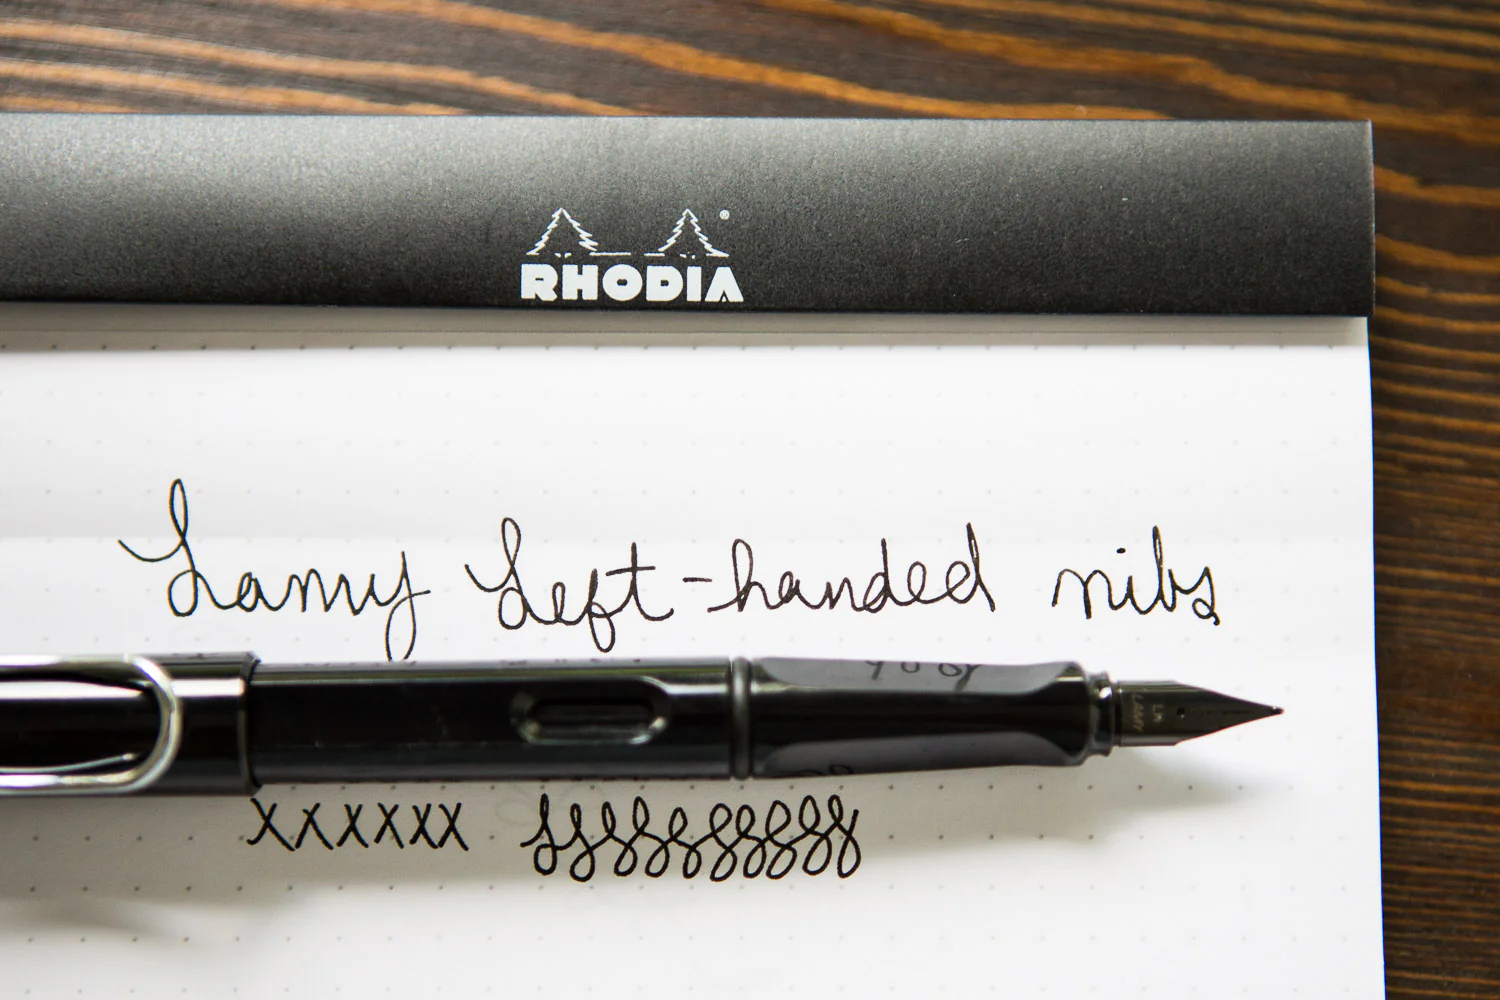 RHODIA®
Lamy Left-handed nibs
LAMY LH
xxxxxx